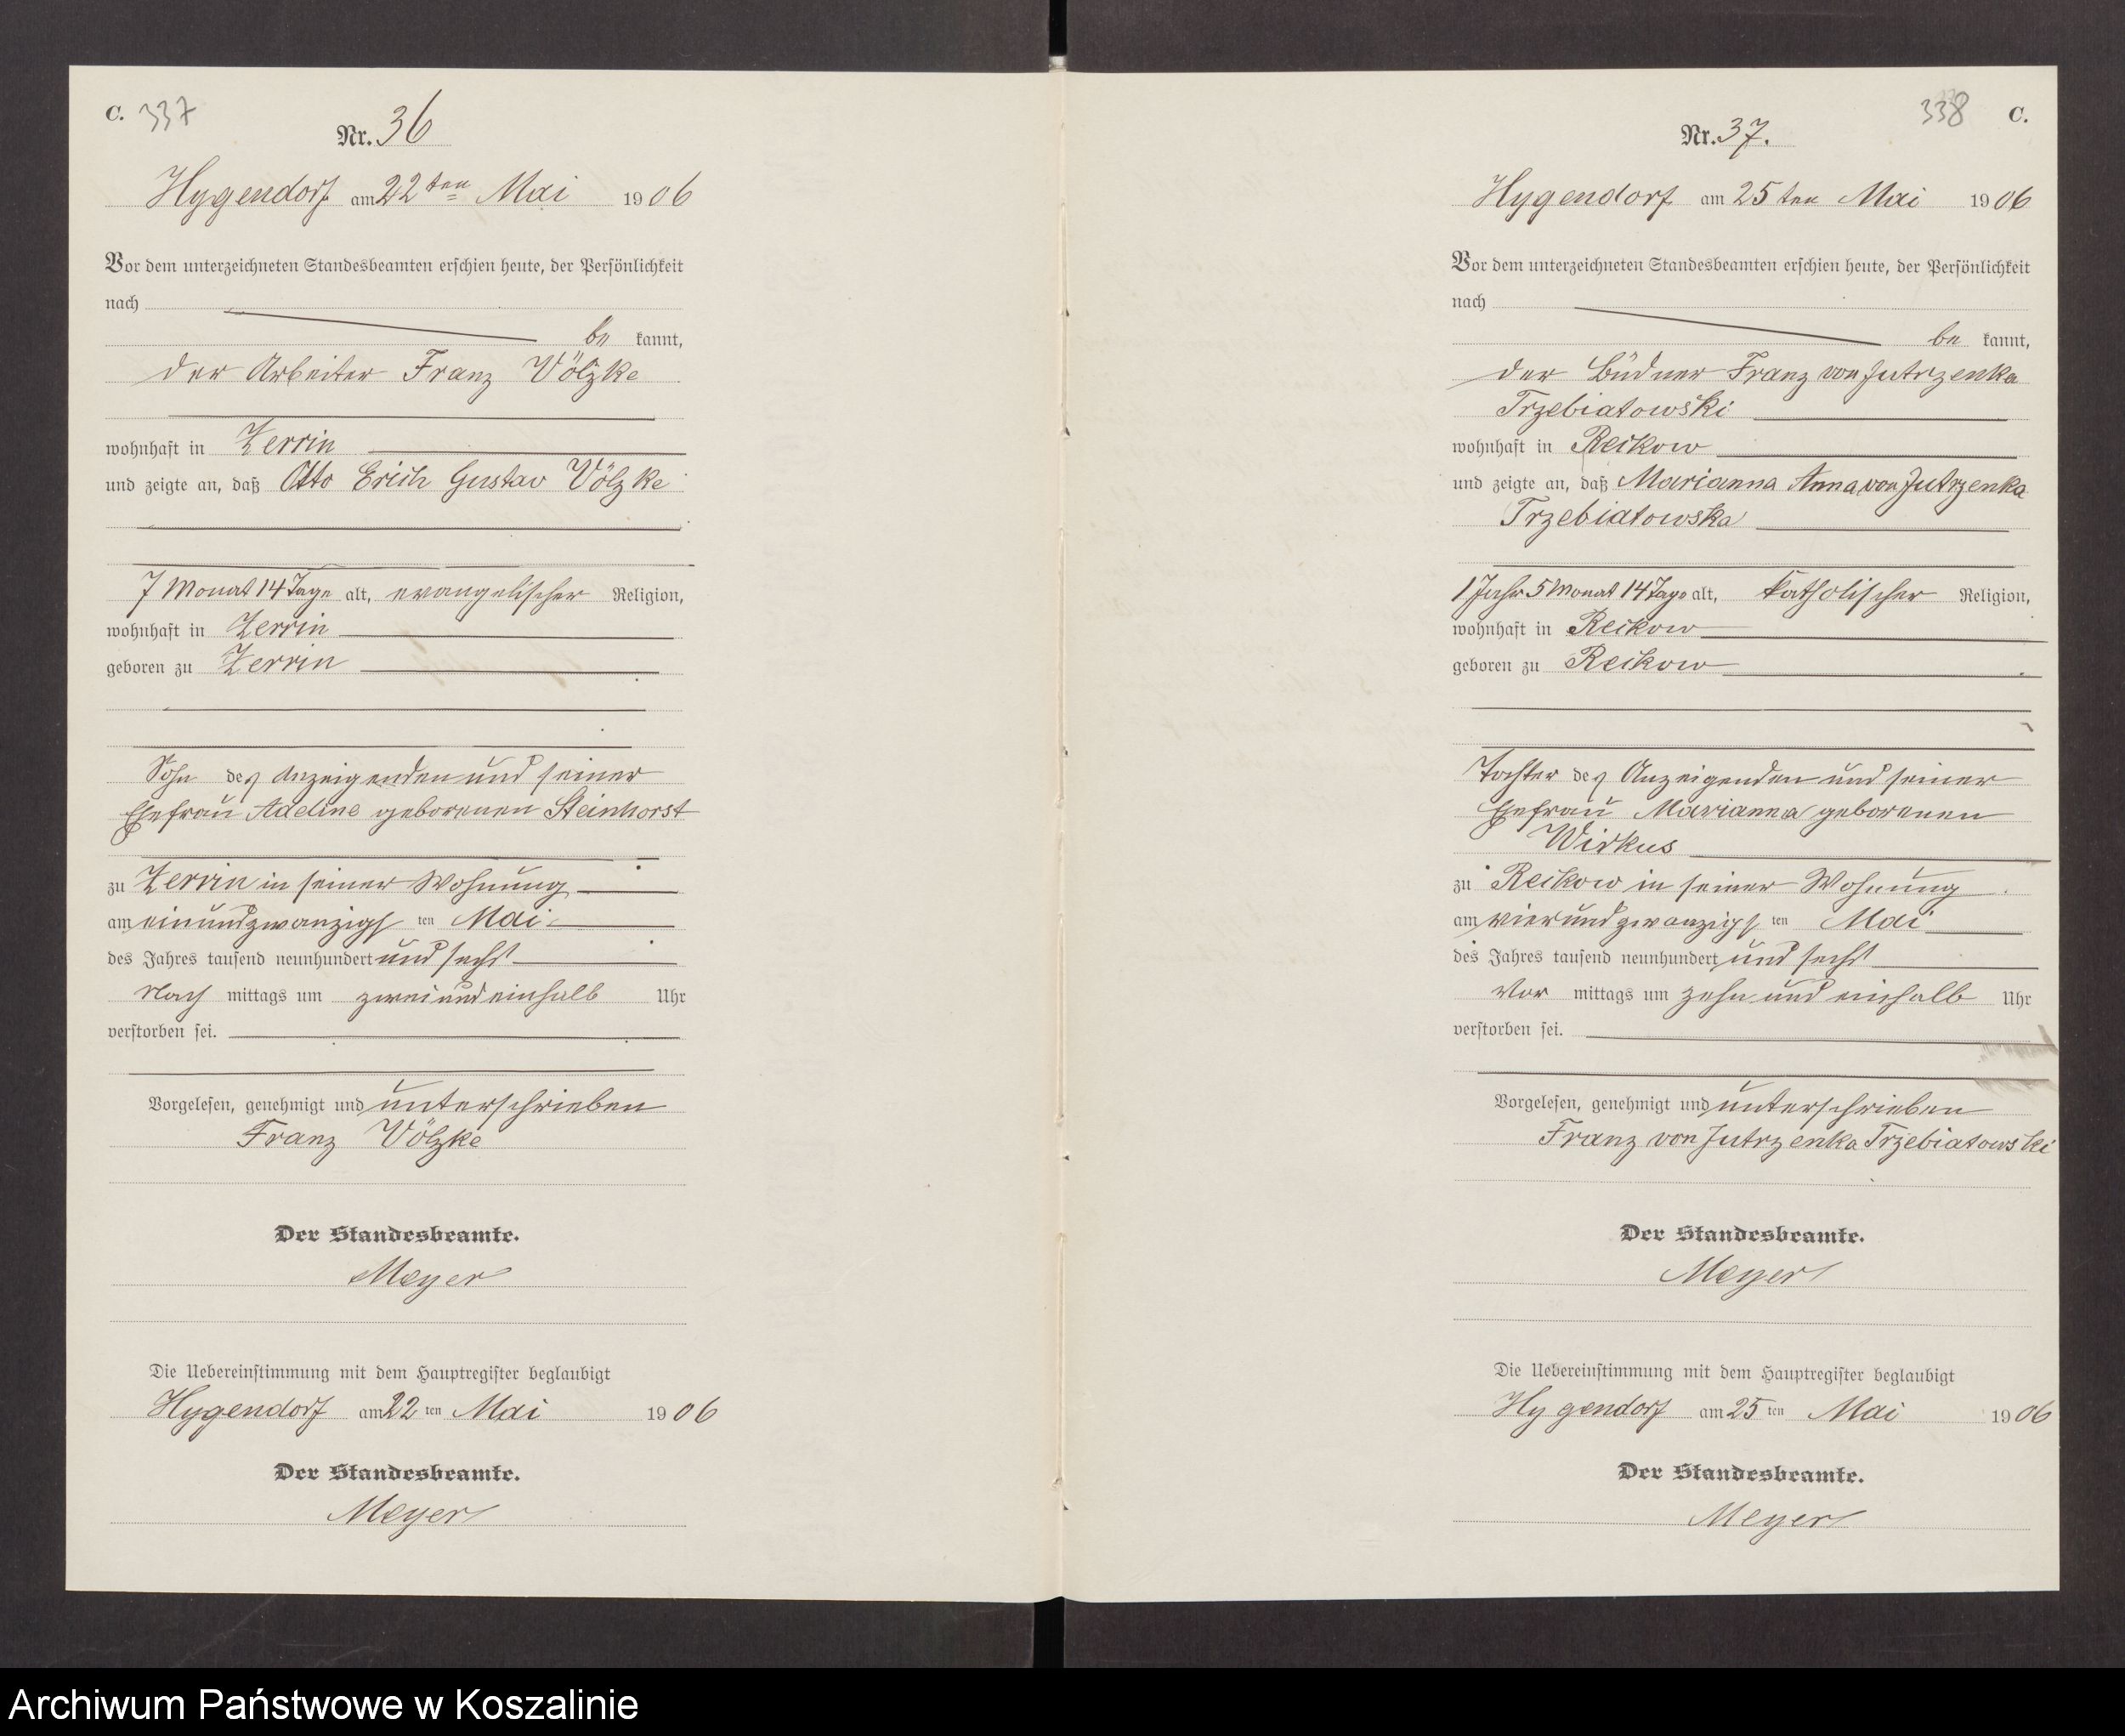 C. 337
Nr. 36
Hygendorf am 22ten Mai 1906
Vor dem unterzeichneten Standesbeamten erschien heute, der Persönlichkeit
nach
be kannt,
der Arbeiter Franz Völzke
wohnhaft in Zerrin
und zeigte an, daß Otto Erich Gustav Völzke
7 Monat 14 Tage alt, evangelischer Religion,
wohnhaft in Zerrin
geboren zu Zerrin
Sohn des Anzeigenden und seiner
Ehefrau Adeline geborenen Steinhorst
zu Zerrin in seiner Wohnung
am einundzwanzigsten Mai
des Jahres tausend neunhundert und sechs
Nach mittags um zwei und einhalb Uhr
verstorben sei.
Vorgelesen, genehmigt und unterschrieben
Franz Völzke
Der Standesbeamte.
Meyer
Die Uebereinstimmung mit dem Hauptregister beglaubigt
Hygendorf am 22 ten Mai 1906
Der Standesbeamte.
Meyer
338 C.
Nr. 37.
Hygendorf am 25ten Mai 1906
Vor dem unterzeichneten Standesbeamten erschien heute, der Persönlichkeit
nach
be kannt,
der Büdner Franz von Jutrzenka
Trzebiatowski
wohnhaft in Reckow
und zeigte an, daß Marianna Anna von Jutrzenka
Trzebiatowska
1 Jahr 5 Monat 14 Tage alt, katholischer Religion,
wohnhaft in Reckow
geboren zu Reckow
Tochter des Anzeigenden und seiner
Ehefrau Marianna geborenen
Wirkus
zu Reckow in seiner Wohnung
am vierundzwanzigsten Mai
des Jahres tausend neunhundert und sechs
Vor mittags um zehn und einhalb Uhr
verstorben sei.
Vorgelesen, genehmigt und unterschrieben
Franz von Jutrzenka Trzebiatowski
Der Standesbeamte.
Meyer
Die Uebereinstimmung mit dem Hauptregister beglaubigt
Hygendorf am 25 ten Mai 1906
Der Standesbeamte.
Meyer
Archiwum Państwowe w Koszalinie